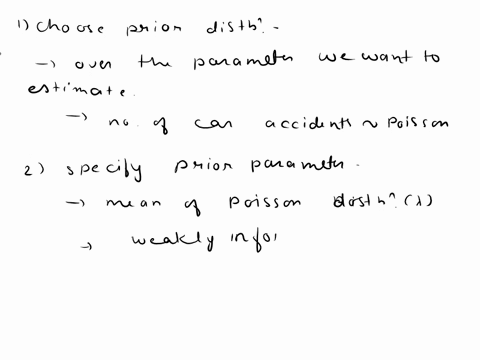 1) choose prior distbⁿ.
→ over the parameter we want to
estimate.
→ no. of car accidents ~ Poisson
2) specify prior parameter.
→ mean of Poisson distbⁿ. (λ)
→ weakly info